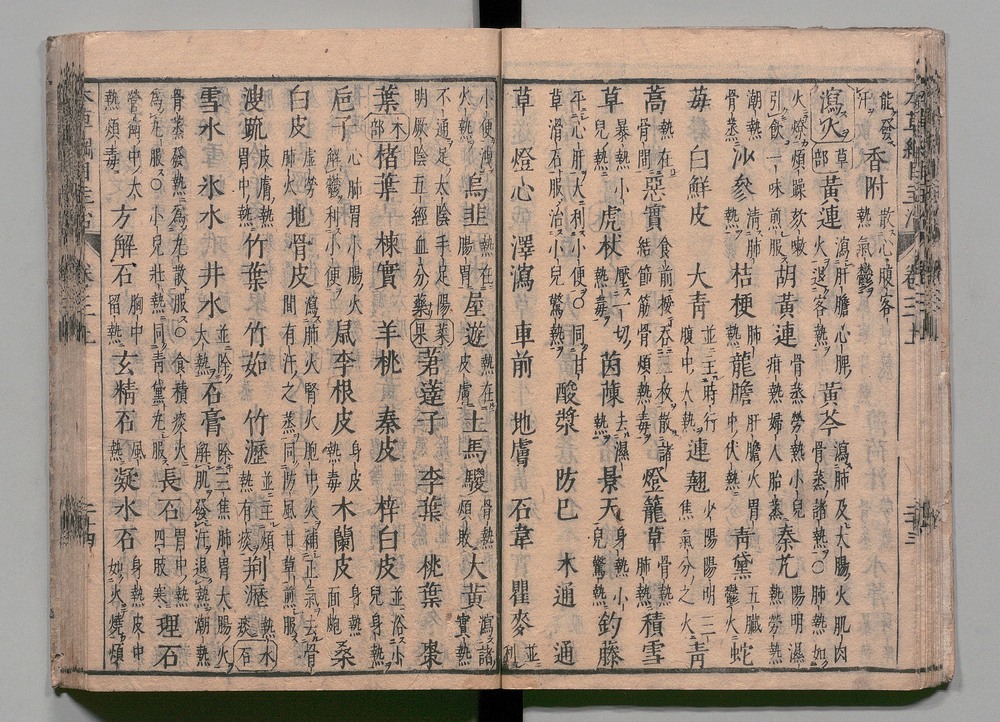 能發汗 香附 散心腹客熱氣鬱
瀉火部 草 黃連 瀉肝膽心脾火退客熱 黃芩 瀉肺及大腸火肌肉骨蒸諸熱○肺熱如
火燎煩躁欬嗽引飲一味煎服 胡黃連 骨蒸勞熱小兒疳熱婦人胎蒸 秦艽 陽明濕熱勞熱
潮熱骨蒸 沙參 清肺熱 桔梗 肺熱 龍膽 肝膽火胃中伏熱 青黛 五臟鬱火 蛇
莓 白鮮皮 大青 並主時行腹中大熱 連翹 少陽陽明三焦氣分之火 青
蒿 熱在骨間 惡實 食前挼吞三枚散諸結節筋骨煩熱毒 燈籠草 骨熱肺熱 積雪
草 暴熱小兒熱 虎杖 壓一切熱毒 茵蔯 去濕熱 景天 身熱小兒驚熱 釣藤
平心肝火利小便○同甘草滑石服治小兒驚熱 酸漿 防巳 木通 通
草 燈心 澤瀉 車前 地膚 石韋 瞿麥 並利
小便泄火熱 烏韭 熱在腸胃 屋遊 熱在皮膚 土馬騣 骨熱煩敗 大黃 瀉諸實熱
不通足太陰手足陽明厥陰五經血分藥 菜果 莙薘子 李葉 桃葉 棗
葉 木部 楮葉 楝實 羊桃 秦皮 梓白皮 並浴小兒身熱
巵子 心肺胃小腸火解鬱利小便 鼠李根皮 身皮熱毒 木蘭皮 身熱面皰 桑
白皮 虛勞肺火 地骨皮 瀉肺火腎火胞中火補正氣去骨間有汗之蒸同防風甘草煎服
溲疏 皮膚熱胃中熱 竹葉 竹茹 竹瀝 並主煩熱有痰 荆瀝 熱痰 水石
雪水 氷水 井水 並除大熱 石膏 除三焦肺胃大腸火解肌發汗退熱潮熱
骨蒸發熱爲丸散服○食積痰火爲丸服○小兒壯熱同青黛丸服 長石 胃中熱四肢寒 理石
營衞中大熱煩毒 方解石 胸中留熱 玄精石 風熱 凝水石 身熱皮中如火燒煩
本草綱目主治 卷三上
二十三
二十四